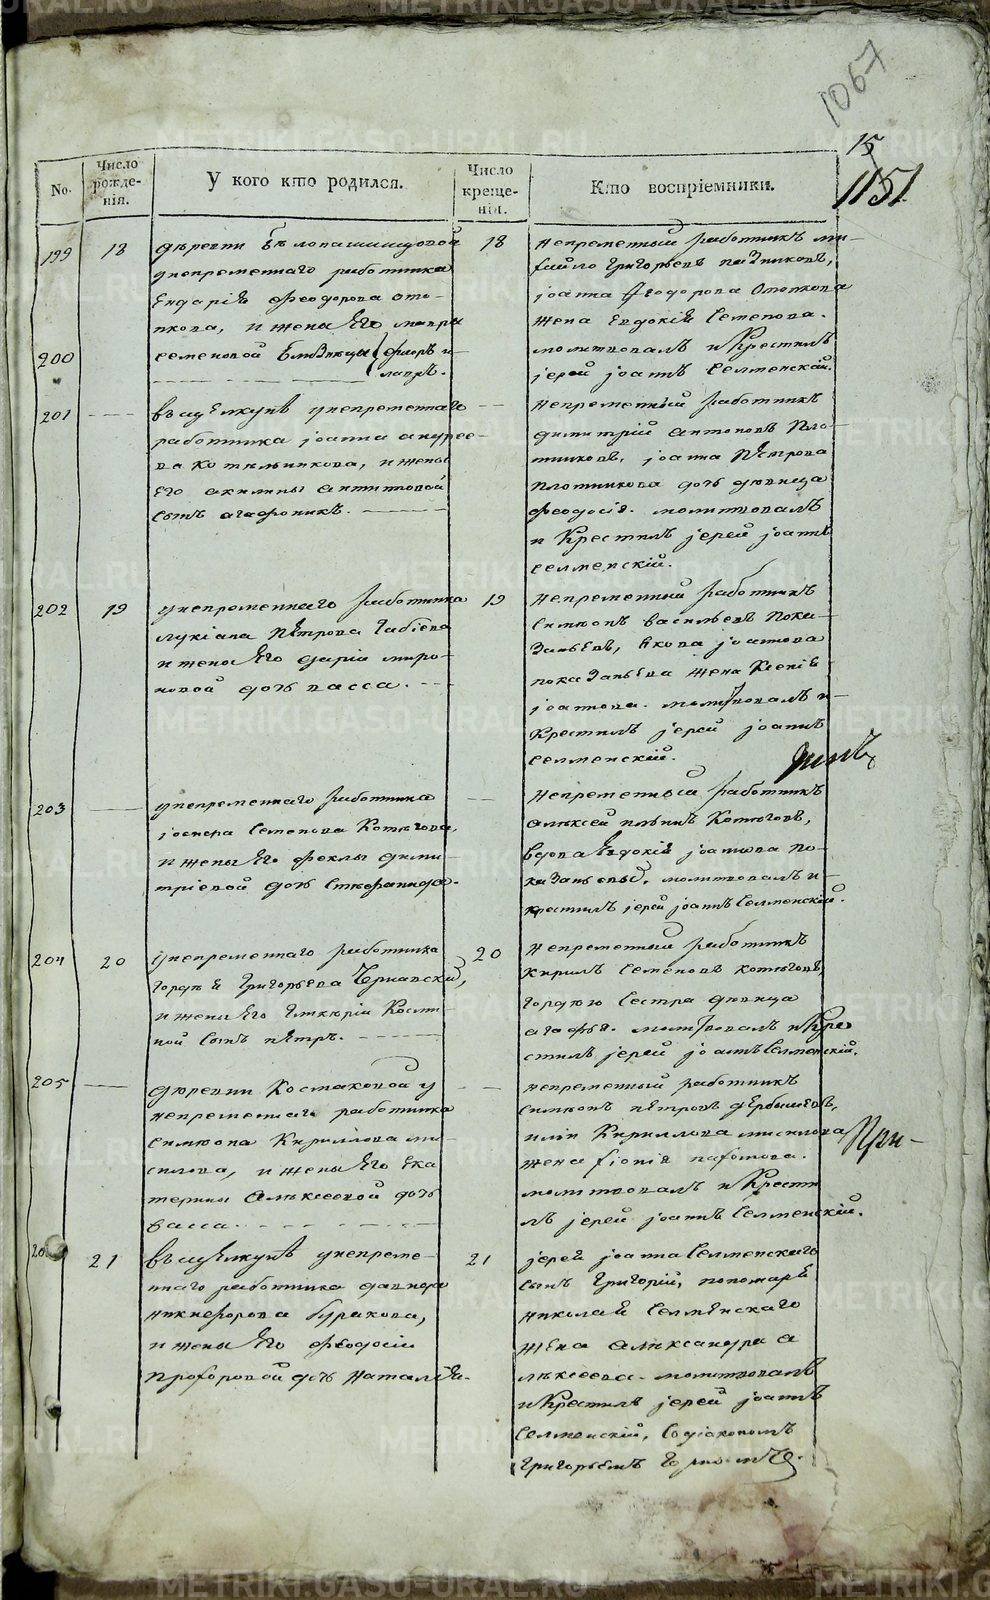 1067
15
1151
No.
Число рожденія.
У кого кто родился.
Число крещенія.
Кто воспріемники.
199
18
деревни
унепременнаго работника
Ендарія Феодорова Ото-
пкова, и жены Его мавры
200
семеновой близнецы Флоръ и
лавръ.
18
непременный работникъ ми-
хайло Григорьевъ
Iоанна Феодорова Отопкова
жена Евдокія Семенова.
молитвовалъ и Крестилъ
Iерей Iоаннъ Селменскій.
201
въ щелкунѣ унепременнаго
работника Iоанна андрее-
ва Котельникова, и жены
Его акилины антиповой
сынъ агафоникъ.
непременный работникъ
димитрій антоновъ Пло-
тниковъ, Iоанна Петрова
Плотникова дочь девица
феодосія. молитвовалъ
и Крестилъ Iерей Iоаннъ
селменскій.
202
19
унепременнаго работника
лукіана Петрова
и жены Его даріи миро-
новой дочь васса.
19
непременный работникъ
Симеонъ васильевъ пока-
заньевъ, Якова Iоаннова
показаньева жена Ксенія
Iоаннова. молитвовалъ и
Крестилъ Iерей Iоаннъ
селменскій.
203
унепременнаго работника
Семенова Котюгова,
и жены Его феклы дими-
тріевой дочь Стефанида.
непременный работникъ
алексей Котюговъ,
вдова Евдокія Iоаннова по-
казаньева, молитвовалъ и
крестилъ Iерей Iоаннъ Селменскій.
204
20
унепременнаго работника
гордѣя Григорьева Чернавскій,
и жены Его Гликеріи
ной сынъ петръ.
20
непременный работникъ
Кирилъ Семеновъ котюговъ,
гордѣю Сестра девица
агафья. молитвовалъ и Кре
стилъ Iерей Iоаннъ Селменскій.
205
деревни Костаковой у
непременнаго работника
симеона Кирилова ми-
силова, и жены Его Ека
терины алексеевой дочь
васса.
непременный работникъ
симеонъ петровъ дербышевъ,
иліи Кирилова мисилова
жена фіонія пафомова.
молитвовалъ и Крести
лъ Iерей Iоаннъ Селменскій.
При-
20
21
въ щелкунѣ унепреме-
ннаго работника
никифорова буракова,
и жены Его феодосіи
Прохоровой дочь наталія.
21
Iерея Iоанна Селменскаго
сынъ Григорій, пономаря
николая Селменскаго
жена александра а
лексеева. молитвовалъ
и Крестилъ Iерей Iоаннъ
селменскій, Содіакономъ
григорьемъ
METRIKI.GASO-URAL.RU